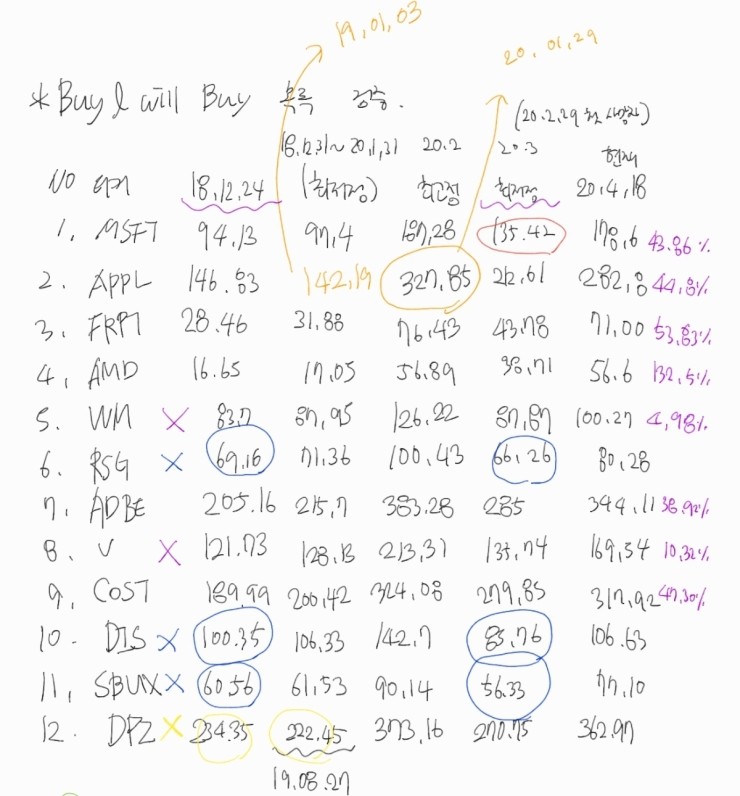 19,01,03
20.01.29
* Buy & will Buy 목록 검증.
(20.2.29 첫 사망자)
18.12.31~20.1.31 20.2 20.3 현재
NO 티커 18.12.24 (최저점) 최고점 최저점 20.4.18
1. MSFT 94.13 97,4 187,28 135.42 178,6 43.86%
2. APPL 146.83 142,19 327,85 212,61 282,8 44,8%
3. FRPT 28.46 31,88 76,43 43,78 71,00 53,83%
4, AMD 16.65 17,05 56,89 38,71 56.6 132,5%
5. WM X 83,7 87,95 126,22 87,87 100,27 4,98%
6. RSG X 69,16 71,36 100,43 66,26 80,28
7, ADBE 205.16 215,7 383,28 285 344,11 38,92%
8. V X 121.73 128,13 213,31 135,74 169,54 10,32%
9, COST 189,99 200,42 324,08 279,85 317,92 47,30%
10. DIS X 100.35 106,33 142,7 85,76 106.63
11, SBUX X 60.56 61,53 90,14 56.33 77,10
12. DPZ X 234.35 222,45 373,16 270.75 362,97
19.08.27